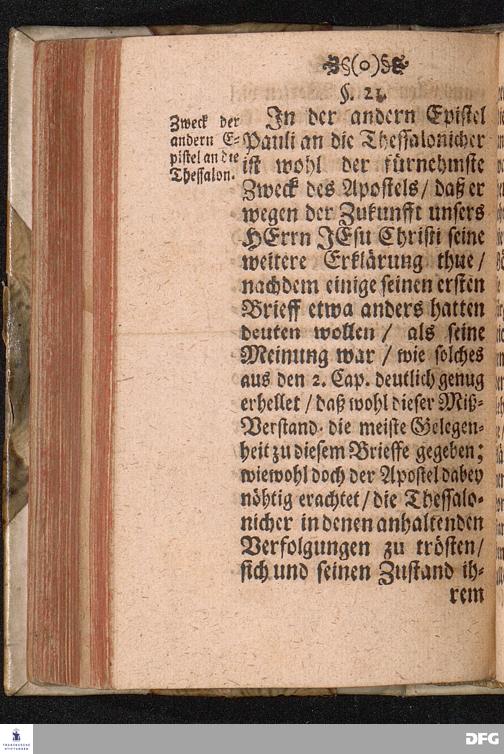 §(o)§
§. 21.
Zweck der
andern E-
pistel an die
Thessalon.
In der andern Epistel
Pauli an die Thessalonicher
ist wohl der fürnehmste
Zweck des Apostels / daß er
wegen der Zukunfft unsers
HErrn JEsu Christi seine
weitere Erklärung thue /
nachdem einige seinen ersten
Brieff etwa anders hatten
deuten wollen / als seine
Meinung war / wie solches
aus den 2. Cap. deutlich genug
erhellet / daß wohl dieser Miß-
Verstand die meiste Gelegen-
heit zu diesem Brieffe gegeben;
wiewohl doch der Apostel dabey
nöhtig erachtet / die Thessalo-
nicher in denen anhaltenden
Verfolgungen zu trösten /
sich und seinen Zustand ih-
rem
FRANCKESCHE
STIFTUNGEN
DFG